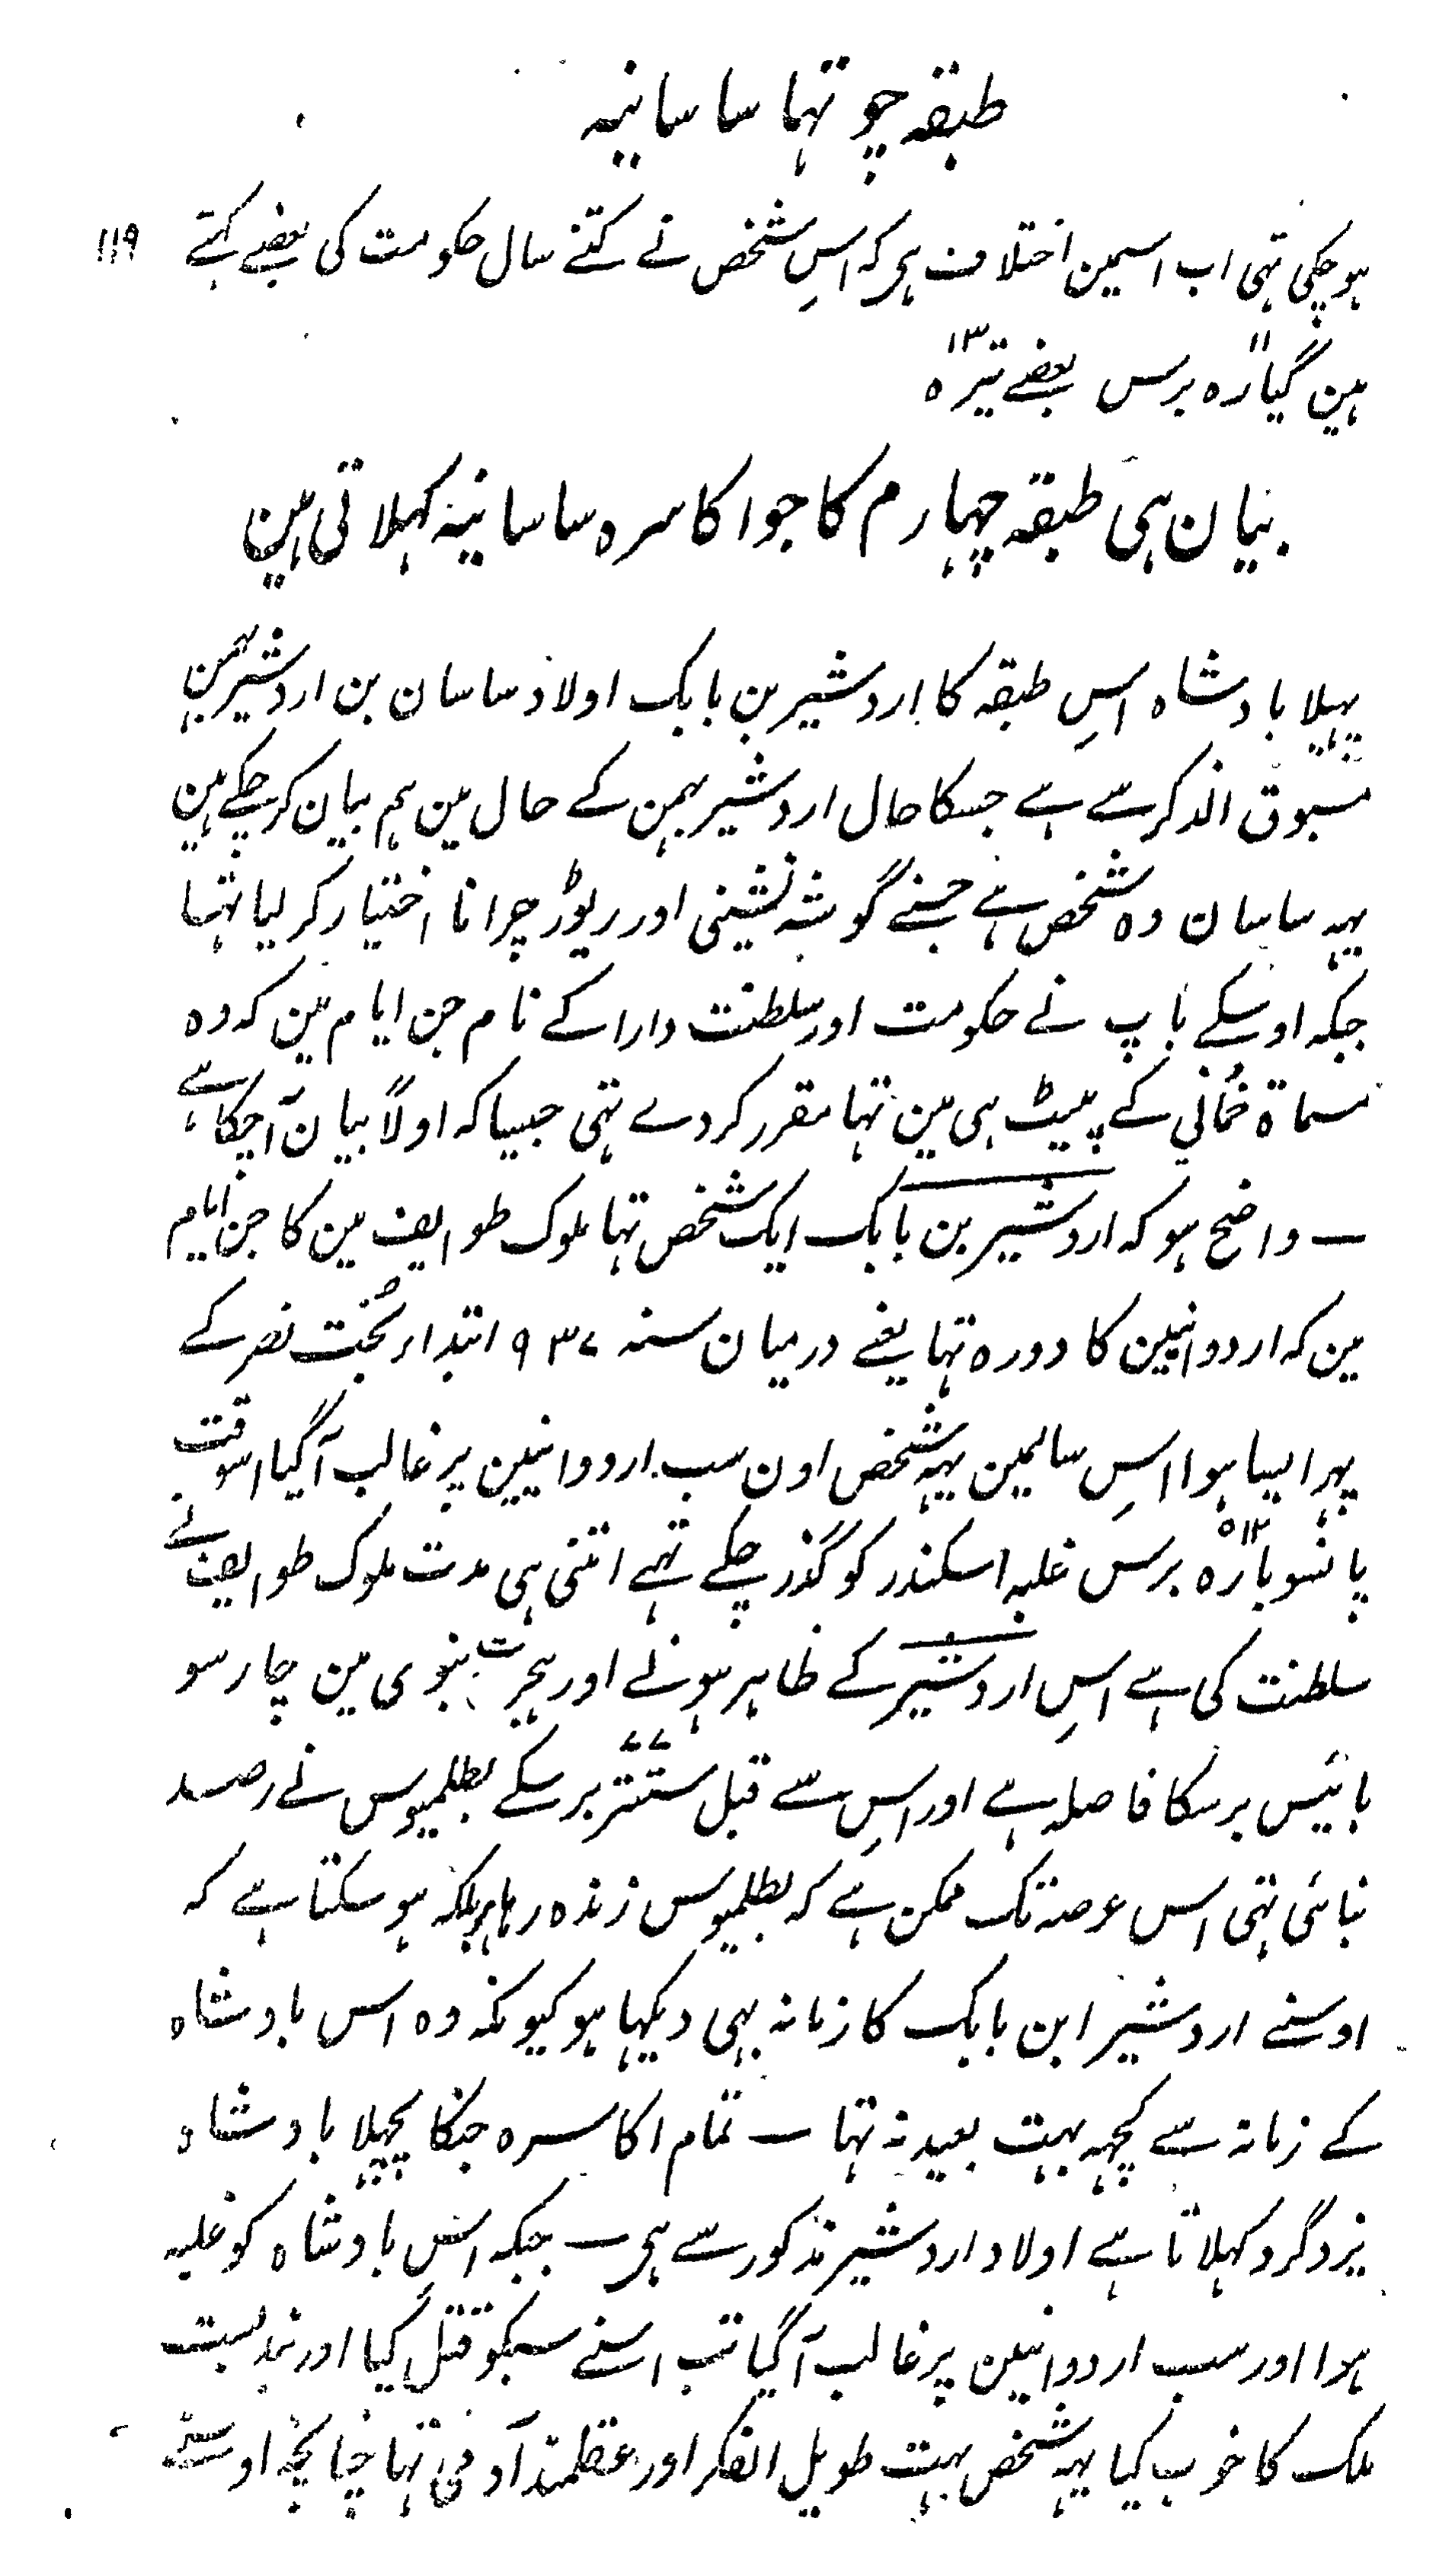 طبقہ چوتہا ساسانیہ
ہوچکی تہی اب اسمین اختلاف ہی کہ اسِ شخص نے کتنے سال حکومت کی بعضے کہتے ۱۱۹
ہین گیارہ ۱۱ برس بعضے تیرہ ۱۳
بیان ہی طبقہ چہارم کا جو اکاسرہ ساسانیہ کہلاتی ہین
پہلا بادشاہ اسِ طبقہ کا اردشیر بن بابک اولاد ساسان بن اردشیر بہمن
مسبوق الذکر سے ہے جسکا حال اردشیر بہمن کے حال مین ہم بیان کرچکے ہین
یہہ ساسان وہ شخص ہے جسنے گوشہ نشینی اور ریوڑ چرانا اختیار کرلیا تہا
جبکہ اوسکے باپ نے حکومت اور سلطنت دارا کے نام جن ایام مین کہ وہ
مسماۃ خُمانی کے پیٹ ہی مین تہا مقرر کردے تہی جیسا کہ اولاً بیان آچکا ہے
ــ واضح ہو کہ اردشیر بن بابک ایک شخص تہا ملوک طوایف مین کا جن ایام
مین کہ اردوانیین کا دورہ تہا یعنے درمیان سنہ ۹۳۷ ابتداء بُخت نصر کے
پہر ایسا ہوا اسِ سالمین یہہ شخص اون سب اردوانیین پر غالب آگیا اسوقت
پانسو بارہ ۵۱۲ برس غلبہ اسکندر کو گذر چکے تہے اتنی ہی مدت ملوک طوایف نے
سلطنت کی ہے اسِ اردشیر کے ظاہر ہونے اور ہجرت نبوی مین چار سو
بائیس برسکا فاصلہ ہے اور اسِ سے قبل ستتر ۷۷ برسکے بطلمیوس نے رصد
بنائی تہی اس عرصہ تک ممکن ہے کہ بطلمیوس زندہ رہا ہو بلکہ ہوسکتا ہے کہ
اوسنے اردشیر ابن بابک کا زمانہ بہی دیکہا ہو کیونکہ وہ اس بادشاہ
کے زمانہ سے کچہہ بہت بعید نہ تہا ــ تمام اکاسرہ جنکا پچہلا بادشاہ
یزدگرد کہلاتا ہے اولاد اردشیر مذکور سے ہی ــ جبکہ اسِ بادشاہ کو غلبہ
ہوا اور سب اردوانیین پر غالب آگیا تب اسنے سبکو قتل کیا اور بندبست
ملک کا خوب کیا یہہ شخص بہت طویل الفکر اور عقلمند آدمی تہا چنانچہ اوسنے